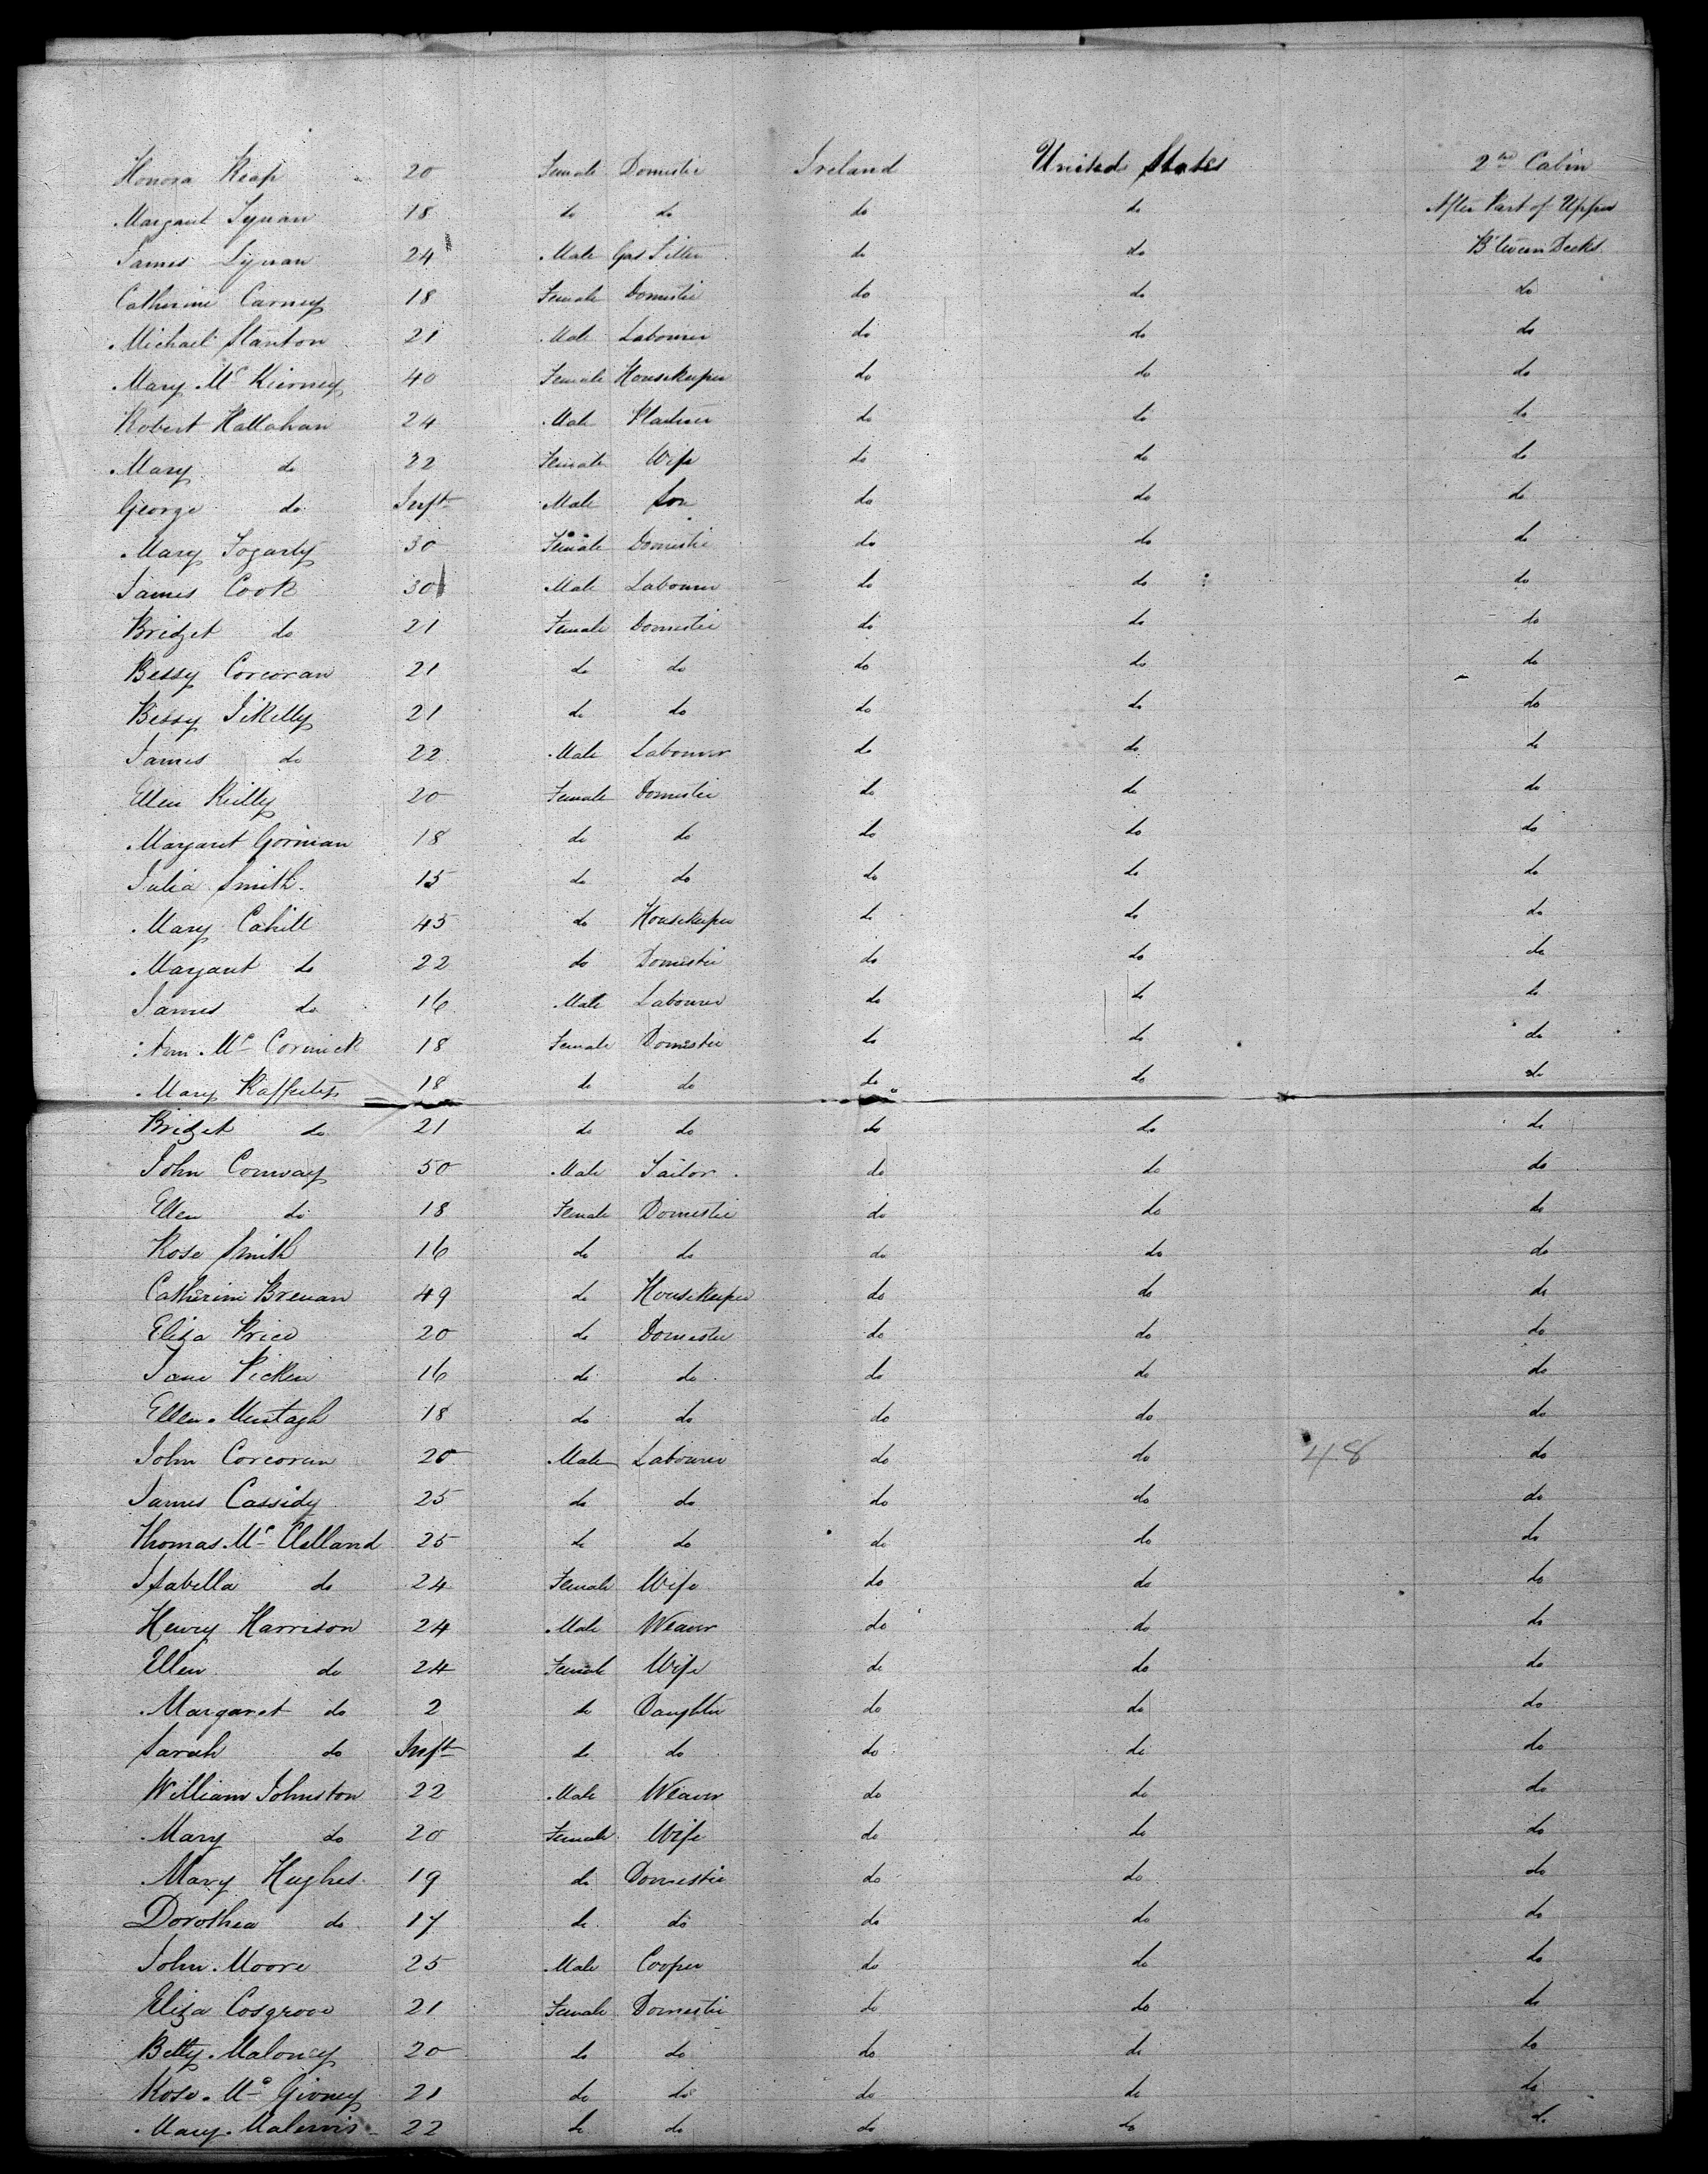 Honora Reap 20 Female Domestic Ireland United States 2nd Cabin
Margaret Lynan 18 do do do do After Part of Upper
James Lynan 24 Male Gas Fitter do do B'tween Decks
Catherine Carney 18 Female Domestic do do do
Michael Stanton 21 Male Labourer do do do
Mary Mc Kierney 40 Female Housekeeper do do do
Robert Hallahan 24 Male Plasterer do do do
Mary do 22 Female Wife do do do
George do Inft Male Son do do do
Mary Fogarty 30 Female Domestic do do do
James Cook 30 Male Labourer do do do
Bridget do 21 Female Domestic do do do
Bessy Corcoran 21 do do do do do
Bessy 21 do do do do do
James do 22 Male Labourer do do do
Ellen Reilly 20 Female Domestic do do do
Margaret Gorman 18 do do do do do
Julia Smith 15 do do do do do
Mary Cahill 45 do Housekeeper do do do
Margaret do 22 do Domestic do do do
James do 16 Male Labourer do do do
Ann Mc Cormick 18 Female Domestic do do do
Mary Rafferty 18 do do do do do
Bridget do 21 do do do do do
John Conway 50 Male Tailor do do do
Ellen do 18 Female Domestic do do do
Rose Smith 16 do do do do do
Catherine Brenan 49 do Housekeeper do do do
Eliza Price 20 do Domestic do do do
Jane Picken 16 do do do do do
Ellen Murtagh 18 do do do do do
John Corcoran 20 Male Labourer do do 48 do
James Cassidy 25 do do do do do
Thomas Mc Clelland 25 do do do do do
Isabella do 24 Female Wife do do do
Henry Harrison 24 Male Weaver do do do
Ellen do 24 Female Wife do do do
Margaret do 2 do Daughter do do do
Sarah do Inft do do do do do
William Johnston 22 Male Weaver do do do
Mary do 20 Female Wife do do do
Mary Hughes 19 do Domestic do do do
Dorothea do 17 do do do do do
John Moore 25 Male Cooper do do do
Eliza Cosgrove 21 Female Domestic do do do
Betty Maloney 20 do do do do do
Rose Mc Givney 21 do do do do do
Mary 22 do do do do do